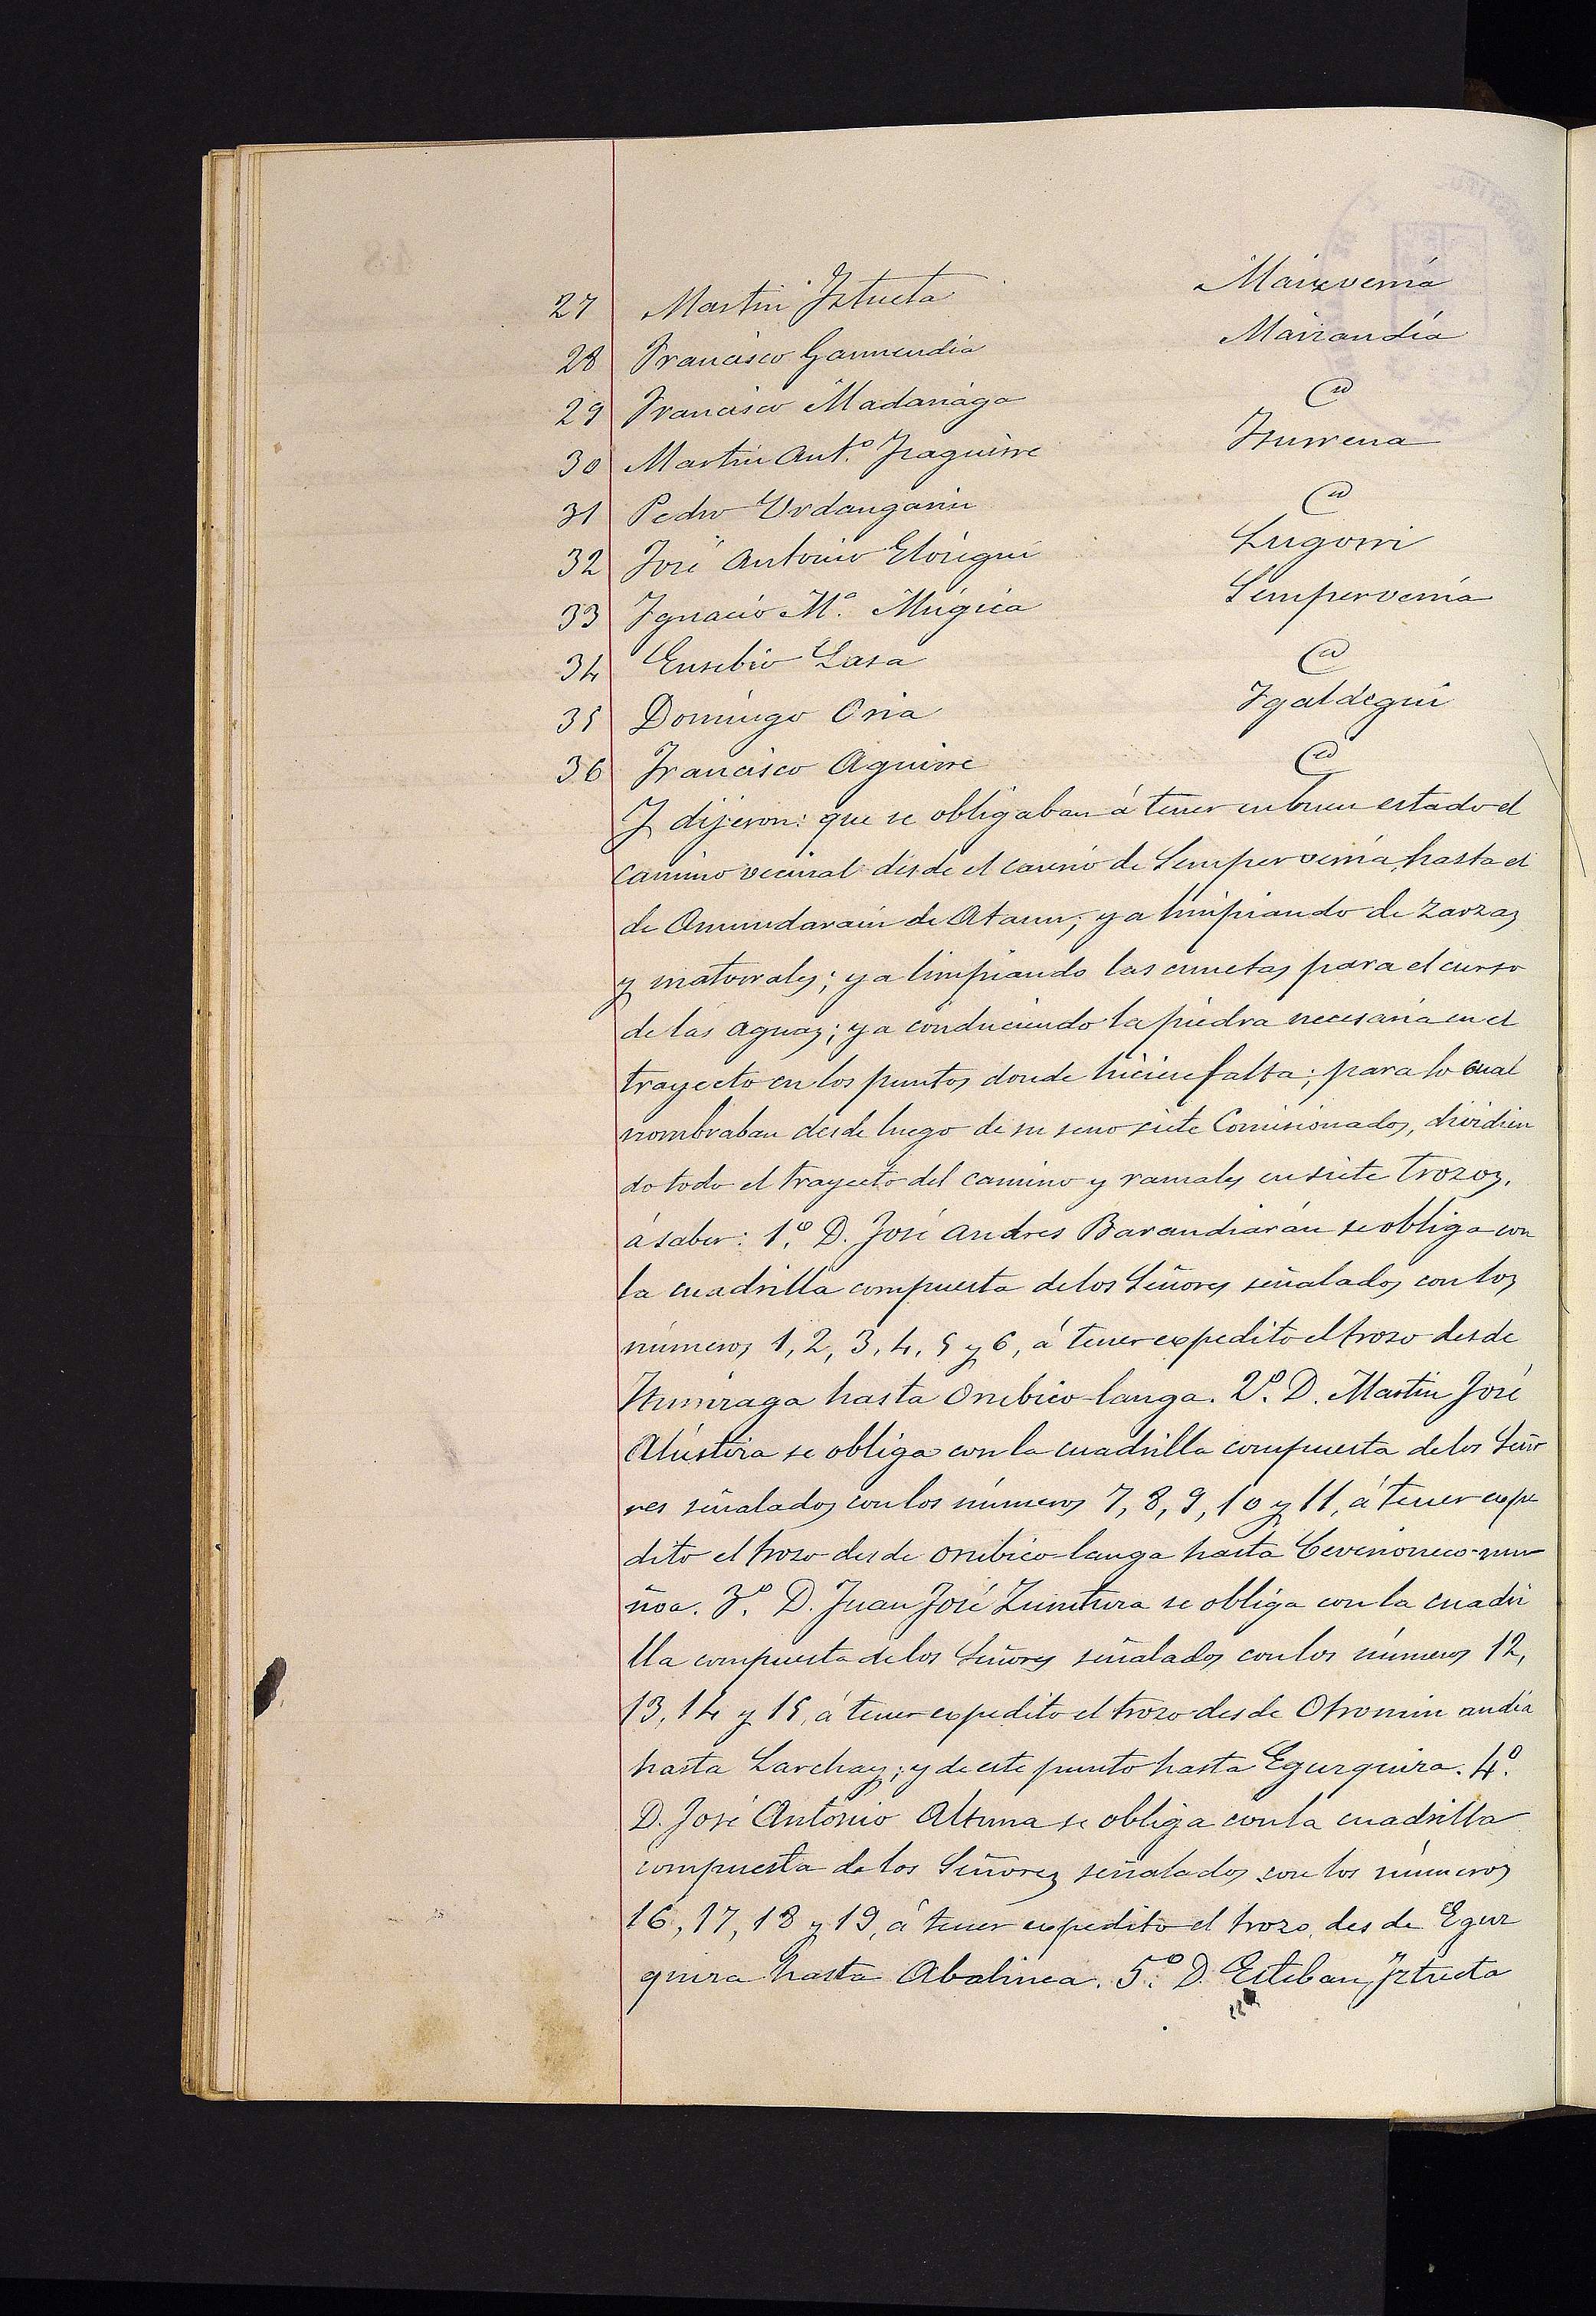 27 Martin Iztueta Maizverria
28 Francisco Garmendia Mairandia
29 Francisco Madariaga Id
30 Martin Ant.º Izaguirre Iturrena
31 Pedro Urdangarin Id
32 José Antonio Elósegui Lugorri
33 Ignacio M.ª Múgica Semperverria
34 Eusebio Lasa Id
35 Domingo Oria Igaldegui
36 Francisco Aguirre Id
Y dijeron: que se obligaban á tener en buen estado el
camino vecinal desde el caserio de Semperverria, hasta el
de Amundarain de Ataun; ya limpiando de zarzas
y matorrales; ya limpiando las cunetas para el curso
de las aguas; ya conduciendo la piedra necesaria en el
trayecto en los puntos donde hiciese falta; para lo cual
nombraban desde luego de su seno siete Comisionados, dividien
do todo el trayecto del camino y ramales en siete trozos,
á saber: 1.º D. José Andres Barandiarán se obliga con
la cuadrilla compuesta de los Señores señalados con los
números 1, 2, 3, 4, 5 y 6, á tener expedito el trozo desde
hasta Oribico-langa. 2.º D. Martin José
Alústiza se obliga con la cuadrilla compuesta de los Seño
res señalados con los números 7, 8, 9, 10 y 11, á tener expe
dito el trozo desde oribico-langa hasta
ñoa. 3.º D. Juan José se obliga con la cuadri
lla compuesta de los Señores señalados con los números 12,
13, 14 y 15, á tener expedito el trozo desde Otromin andia
hasta Larchay; y de este punto hasta Egurquiza. 4.º
D. José Antonio Altuna se obliga con la cuadrilla
compuesta de los Señores señalados con los números
16, 17, 18 y 19, á tener expedito el trozo, desde Egur
quiza hasta Abalinea. 5.º D. Esteban Iztueta